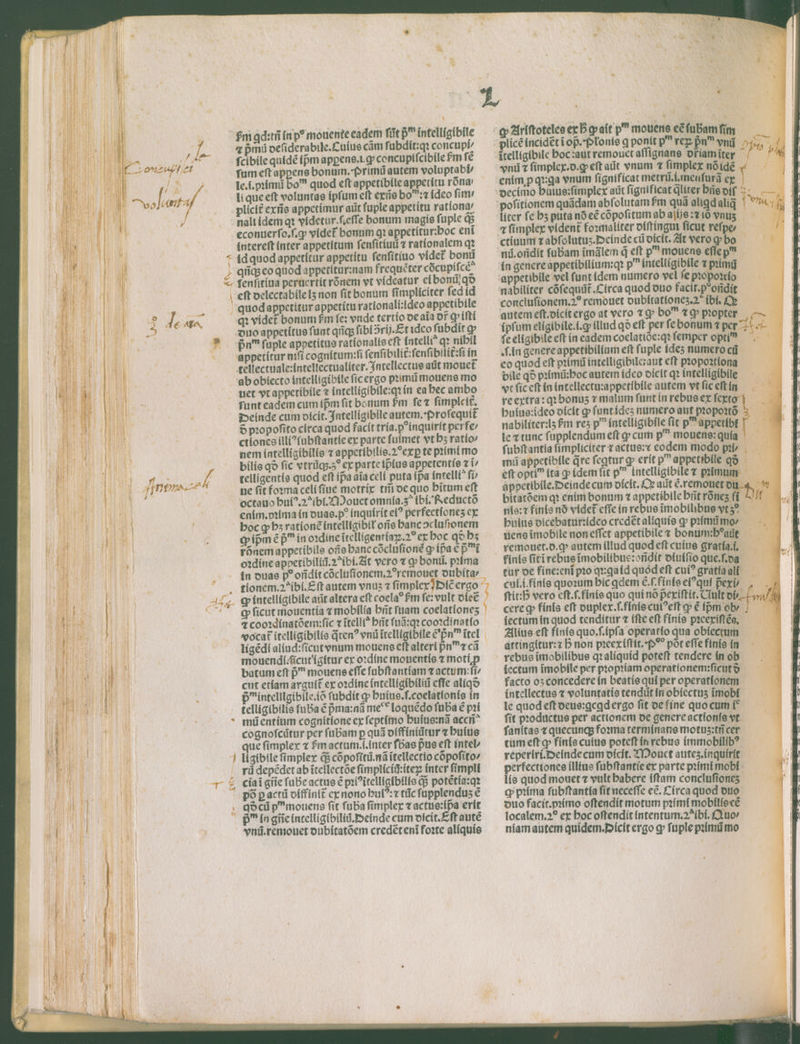 L
ſm qd:tñ in pº mouente eadem ſũt p̃m intelligibile
⁊ p̃mũ deſiderabile.Cuius cãm ſubdit:qꝛ concupi⸗
ſcibile quidẽ ip̃m appens.i.ꝙ concupiſcibile ſm ſẽ
ſum eſt appens bonum.Primũ autem voluptabi⸗
le.i.primũ boᵐ quod eſt appetibile appetitu rõna⸗
li que eſt voluntas ipſum eſt exñs boᵐ:⁊ ideo ſim⸗
plicit̃ exñs appetimur aũt ſuple appetitu rationa⸗
nali idem qꝛ videtur.ſ.eſſe bonum magis ſuple ꝙ̃
econuerſo.ſ.ꝙ videt̃ bonum qꝛ appetitur:hoc eni
intereſt inter appetitum ſenſitiuũ ⁊ rationalem qꝛ
id quod appetitur appetitu ſenſitiuo videt̃ bonũ
qñqꝫ eo quod appetitur:nam frequẽter cõcupiſcẽᵃ
ſenſitiua peruertit rõnem vt videatur ei bonũ qð
eſt delectabile lꝫ non ſit bonum ſimpliciter ſed id
quod appetitur appetitu rationali:ideo appetibile
qꝛ videt̃ bonum ſm ſe: vnde tertio de aĩa dr̃ ꝙ iſti
duo appetitus ſunt qñqꝫ ſibi ↄ̃rij.Et ideo ſubdit ꝙ
p̃nᵐ ſuple appetitus rationalis eſt intelliᵃ qꝛ nihil
appetitur niſi cognitum:ſi ſenſibilit̃:ſenſibilit̃:ſi in
tellectuale:intellectualiter.Intellectus aũt mouet̃
ab obiecto intelligibile ſic ergo primũ mouens mo
uet vt appetibile ⁊ intelligibile:qꝛ in ea hec ambo
ſunt eadem cum ip̃m ſit bonum ſm ſe ⁊ ſimplicit̃.
Deinde cum dicit.Intelligibile autem.Proſequit̃
ð propoſito circa quod facit tria.pº inquirit perfe⸗
ctiones illiꝰ ſubſtantie ex parte ſuimet vt hꝫ ratio⸗
nem intelligibilis ⁊ appetibilis.2º exꝓ te primi mo
bilis qð ſic vtrũqꝫ.3º ex parte ipſius appetentis ⁊ i⸗
telligentis quod eſt ip̃a aĩa celi puta ip̃a intelliᵃ ſi⸗
ue ſit forma celi ſiue motrix tñ de quo hitum eſt
octauo huiꝰ.2ᵃ ibi.Mouet omnia.3ᵃ ibi.Reductõ
enim.prima in duas.pº inquirit eiꝰ perfectiones ex
hoc ꝙ hꝫ rationẽ intelligibil̃ oñs hanc ↄcluſionem
ꝙ ip̃m ẽ p̃ᵐ in ordine ĩtelligentiaꝝ.2º ex hoc qð hꝫ
rõnem appetibile oñs hanc cõcluſionẽ ꝙ ip̃a ẽ p̃ᵐ ĩ
ordine appetibiliũ.2ᵃ ibi.At vero ⁊ ꝙ bonũ. prima
in duas pº oñdit cõcluſionem.2º remouet dubita⸗
tionem.2ᵃ ibi.Eſt autem vnuꝫ ⁊ ſimplex.Dic̃ ergo
ꝙ intelligibile aũt altera eſt coelaᵒ ſm ſe:vult dicẽ
ꝙ ſicut mouentia ⁊ mobilia hñt ſuam coelationes
⁊ coordinatõem:ſic ⁊ ĩtelliᵃ hñt ſuã:qꝛ coordinatio
vocat̃ ĩtelligibilis q̃renꝰ vnũ ĩtelligibile ẽ p̃nᵐ ĩtel
ligẽdi aliud:ſicut vnum mouens eſt alteri p̃nᵐ ⁊ cã
mouendi.ſicut igitur ex ordine mouentis ⁊ moti ꝓ
batum eſt p̃ᵐ mouens eſſe ſubſtantiam ⁊ actum:ſi⸗
cut etiam arguit̃ ex ordine intelligibiliũ eſſe aliqð
p̃ᵐ intelligibile.iõ ſubdit ꝙ huius.ſ.coelationis in
telligibilis ſuba ẽ p̃ma:nã meᶜᵉ loquẽdo ſuba ẽ pri
mũ entium cognitione ex ſeptimo huius:nã accñᵃ
cognoſcũtur per ſubam ꝓ quã diffiniũtur ⁊ huius
que ſimplex ⁊ ſm actum.i.inter ſbas prius eſt intel⸗
ligibile ſimplex ꝙ̃ cõpoſitũ.nã ĩtellectio cõpoſito⸗
rũ depẽdet ab ĩtellectõe ſimpliciũ:iteꝝ inter ſimpli
cia ĩ gñe ſube actus ẽ priꝰ ĩtelligibilis ꝙ̃ potẽtia:qꝛ
põ ꝑ actũ diffinit̃ ex nono huiꝰ:⁊ tũc ſupplenduꝫ ẽ
qð cũ pᵐ mouens ſit ſuba ſimplex ⁊ actus:ip̃a erit
p̃ᵐ in gñe intelligibiliũ.Deinde cum dicit.Eſt autẽ
vnũ.remouet dubitatõem credẽt eni forte aliquis
ꝙ Ariſtoteles ex ħ ꝙ ait pᵐ mouens eẽ ſubam ſim
plicẽ incidẽt ĩ op̃.Platonis q ponit pᵐ reꝝ p̃nᵐ vnũ
ĩtelligibile hoc:aut remouet aſſignans driam iter
vnũ ⁊ ſimplex.d.ꝙ eſt aũt vnum ⁊ ſimplex nõ idẽ
enim ꝓ qꝛ:ga vnum ſignificat metrũ.i.menſurã ex
decimo huius:ſimplex aũt ſignificat q̃liter hñs diſ
poſitionem quãdam abſolutam ſm quã aliqd aliq̃
liter ſe hꝫ puta nõ eẽ cõpoſitum ab alijs:⁊ iõ vnuꝫ
⁊ ſimplex vident̃ formaliter diſtingui ſicut reſpe⸗
ctiuum ⁊ abſolutuꝫ.Deinde cũ dicit. At vero ꝙ bo
nũ.oñdit ſubam imãlem q̃ eſt pᵐ mouens eſſe pᵐ
in genere appetibilium:qꝛ pᵐ intelligibile ⁊ primũ
appetibile vel ſunt idem numero vel ſe proportio
nabiliter cõſequũt̃.Circa quod duo facit.pº oñdit
concluſionem.2º remouet dubitationeꝫ.2ᵃ ibi. Qꝛ
autem eſt.dicit ergo at vero ⁊ ꝙ boᵐ ⁊ ꝙ propter
ipſum eligibile.i.ꝙ illud qð eſt per ſe bonum ⁊ per
ſe eligibile eſt in eadem coelatiõe:qꝛ ſemper optiᵐ
.ſ.in genere appetibilium eſt ſuple ideꝫ numero cũ
eo quod eſt primũ intelligibile:aut eſt proportiona
bile qð primũ:hoc autem ideo dicit qꝛ intelligibile
vt ſic eſt in intellectu:appetibile autem vt ſic eſt in
re extra: qꝛ bonuꝫ ⁊ malum ſunt in rebus ex ſexto
huius:ideo dicit ꝙ ſunt ideꝫ numero aut proportõ
nabiliter:lꝫ ſm reꝫ pᵐ intelligibile ſit pᵐ appetibi
le ⁊ tunc ſupplendum eſt ꝙ cum pᵐ mouens: quia
ſubſtantia ſimpliciter ⁊ actus:⁊ eodem modo pri⸗
mũ appetibile q̃re ſeqtur ꝙ erit pᵐ appetibile qð
eſt optiᵐ ita ꝙ idem ſit pᵐ intelligibile ⁊ primum
appetibile.Deinde cum dicit. Qꝛ aũt ẽ.remouet du
bitatõem qꝛ enim bonum ⁊ appetibile hñt rõneꝫ fi
nis:⁊ finis nõ videt̃ eſſe in rebus imobilibus vt 3º
huius dicebatur:ideo credẽt aliquis ꝙ primũ mo⸗
uens imobile non eſſet appetibile ⁊ bonum:hº aũt
remouet.d.ꝙ autem illud quod eſt cuius gratia.i.
finis ſit ĩ rebus imobilibus:oñdit diuiſio que.ſ.da
tur de fine:eni pro qꝛ:qa id quod eſt cuiꝰ gratia ali
cui.i.finis quorum hic qdem ẽ.ſ.finis eiꝰ qui p̃exi⸗
ſtit:ħ vero eſt.ſ.finis quo qui nõ p̃exiſtit.Uult di⸗
cere ꝙ finis eſt duplex.ſ.finis cuiꝰ eſt ꝙ ẽ ip̃m ob⸗
iectum in quod tenditur ⁊ iſte eſt finis preexiſtẽs.
Alius eſt finis quo.ſ.ipſa operatio qua obiectum
attingitur:⁊ ħ non preexiſtit.Pº põt eſſe finis in
rebus imobilibus qꝛ aliquid poteſt tendere in ob
iectum imobile per propriam operationem:ſicut ð
facto oꝫ concedere in beatis qui per operationem
intellectus ⁊ voluntatis tendũt in obiectuꝫ imobi
le quod eſt deus:qcqd ergo ſit de fine quo cum iᶜ
ſit productus per actionem de genere actionis vt
ſanitas ⁊ quecunqꝫ forma terminans motuꝫ:tñ cer
tum eſt ꝙ finis cuius poteſt in rebus immobilibꝰ
reperiri.Deinde cum dicit. Mouet auteꝫ.inquirit
perfectiones illius ſubſtantie ex parte primi mobi
lis quod mouet ⁊ vult habere iſtam concluſioneꝫ
ꝙ prima ſubſtantia ſit neceſſe eẽ. Circa quod duo
duo facit.primo oſtendit motum primi mobilis eẽ
localem.2º ex hoc oſtendit intentum.2ᵃ ibi. Quo⸗
niam autem quidem.Dicit ergo ꝙ ſuple primũ mo